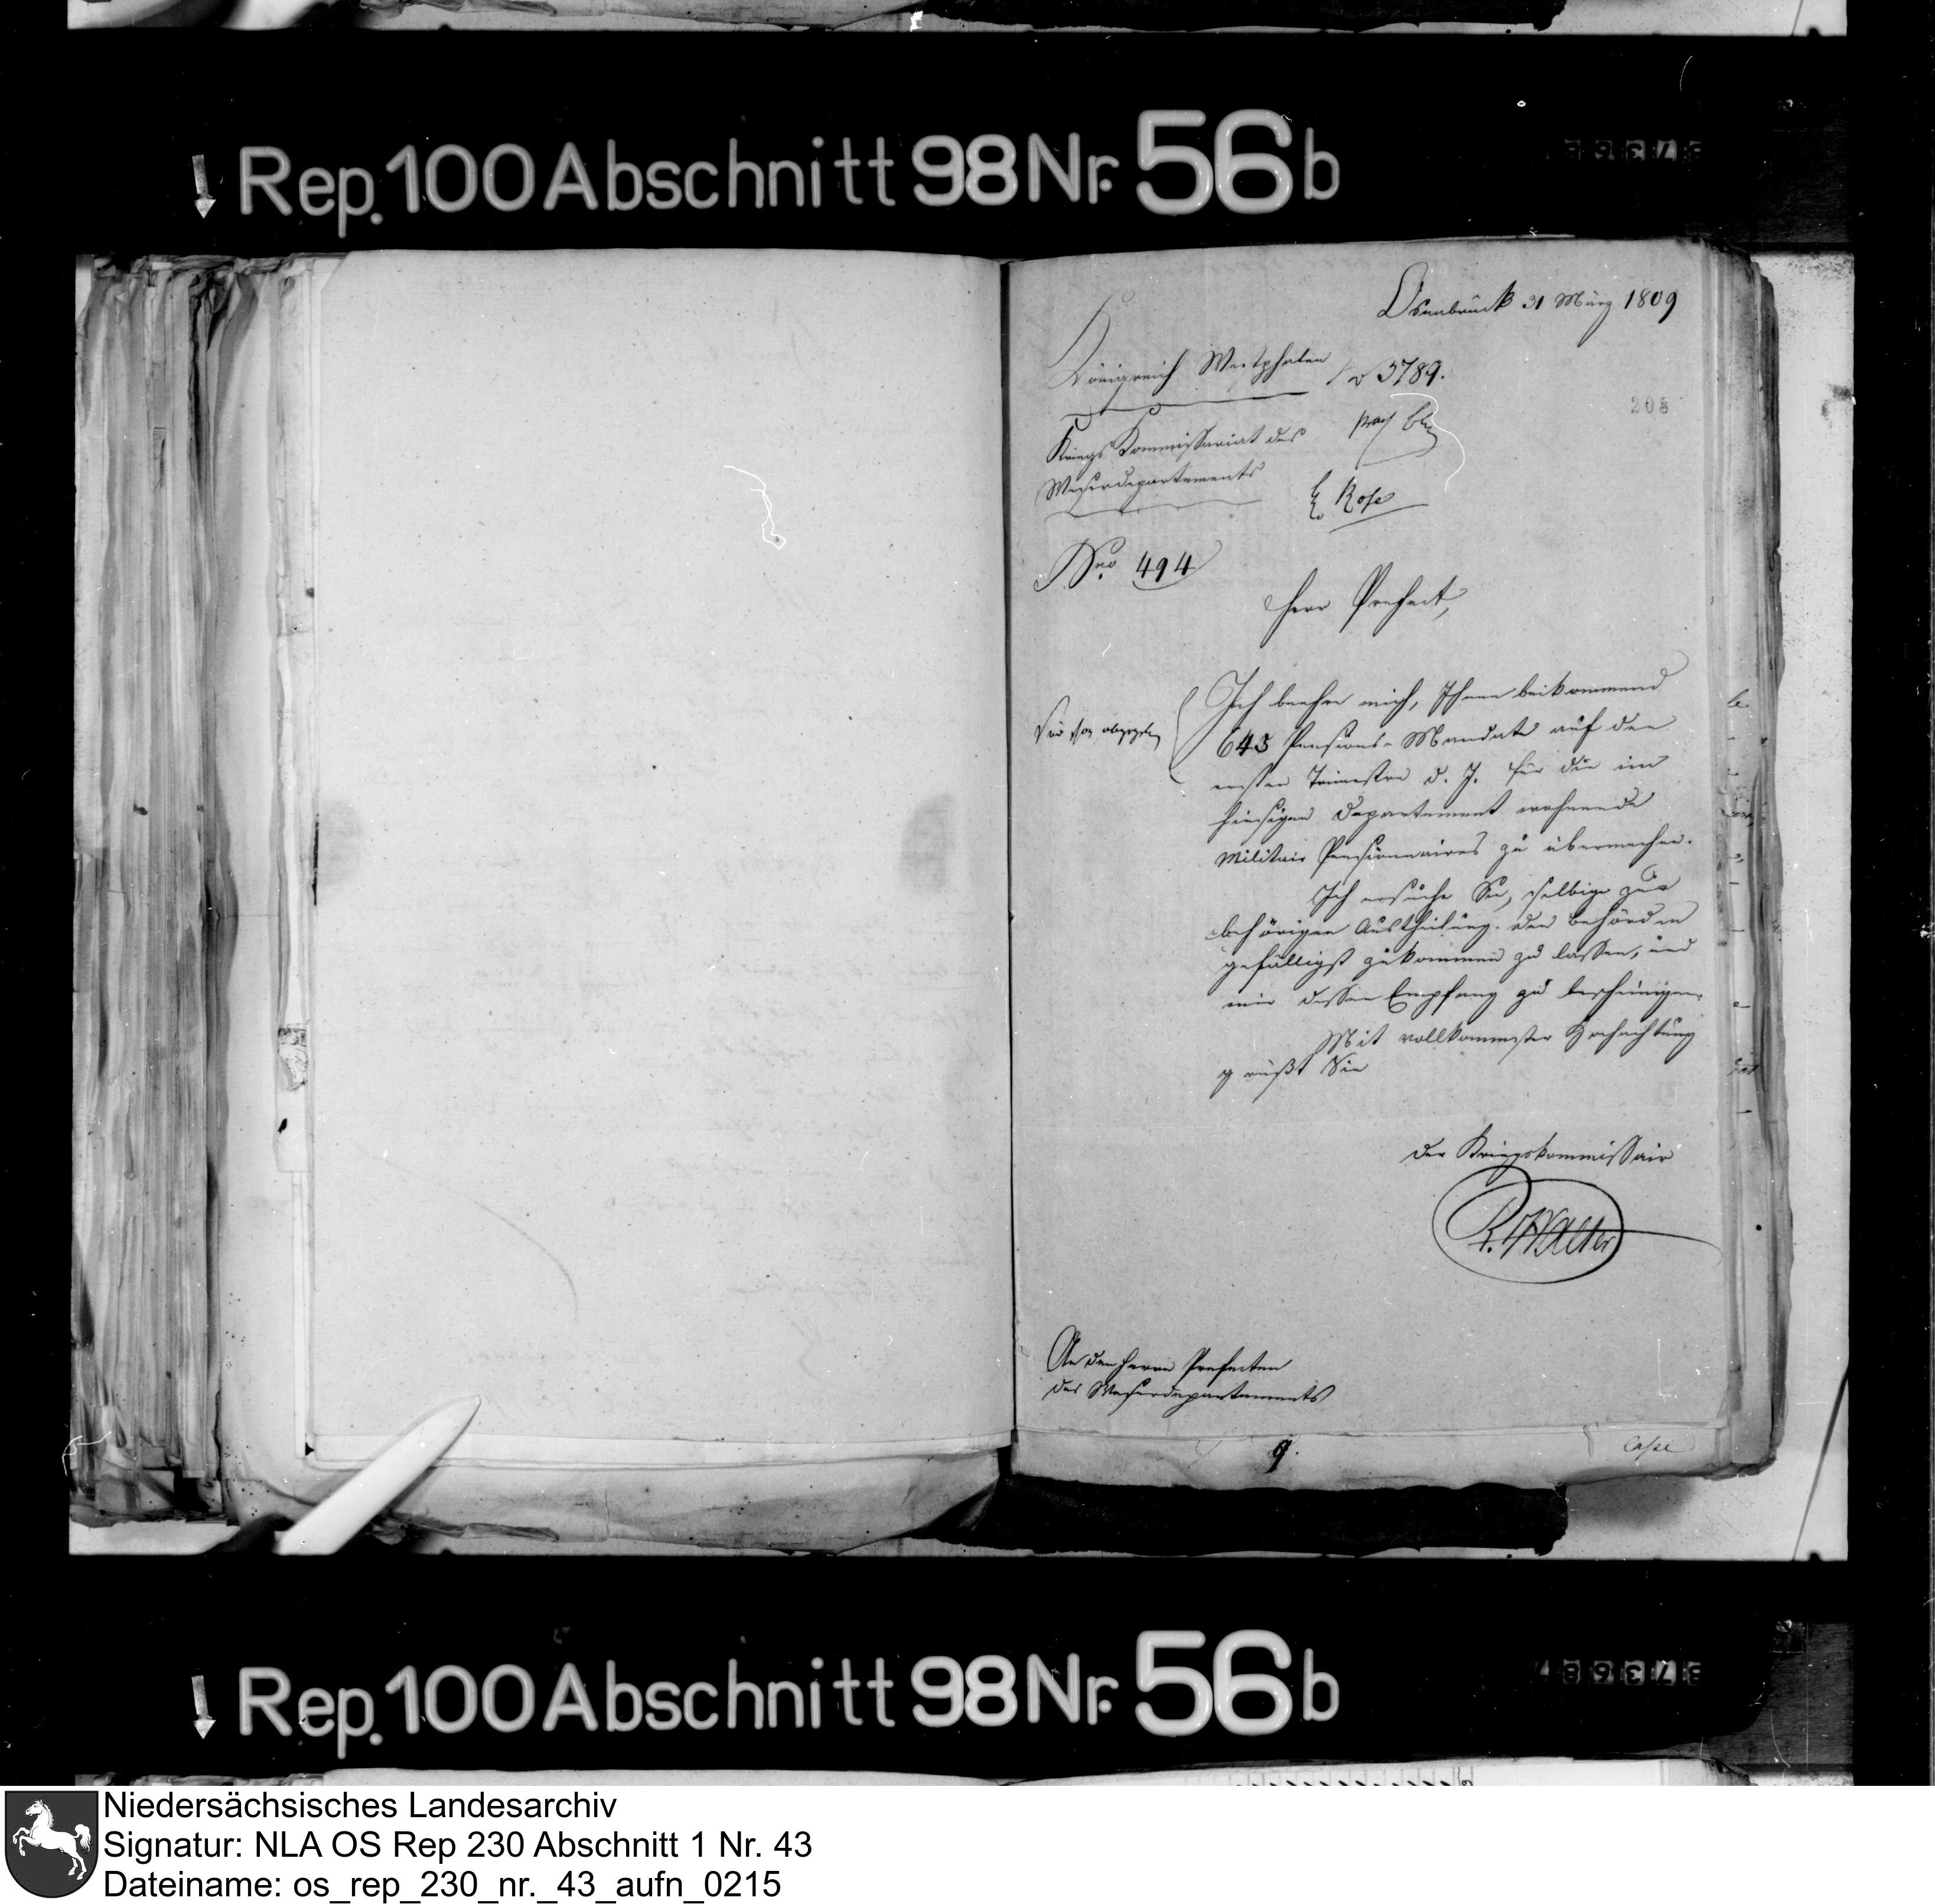 Rep. 100 Abschnitt 98 Nr. 56 b
Osnabrück 31 März 1809
Königreich Westphalen
No 3789.
208
Kriegs Kommissariat des
Weserdepartements
Rose
Nro 494
Herr Prefect,
Ich beehre mich, Ihnen beikommend
643 Pensions-Mandate auf den
ersten Trimestre d. J. für die im
hiesigen Departement wohnende
Militair Pensionnaires zu übermachen.
Ich ersuche Sie, selbige zur
behörigen Austheilung den Behörden
gefälligst zukommen zu lassen, und
mir dessen Empfang zu bescheinigen.
Mit vollkommenster Hochachtung
grüßt Sie
der Kriegskommissair
Walter
An den Herrn Prefecten
des Weserdepartements
9.
Rep. 100 Abschnitt 98 Nr. 56 b
Niedersächsisches Landesarchiv
Signatur: NLA OS Rep 230 Abschnitt 1 Nr. 43
Dateiname: os_rep_230_nr._43_aufn_0215